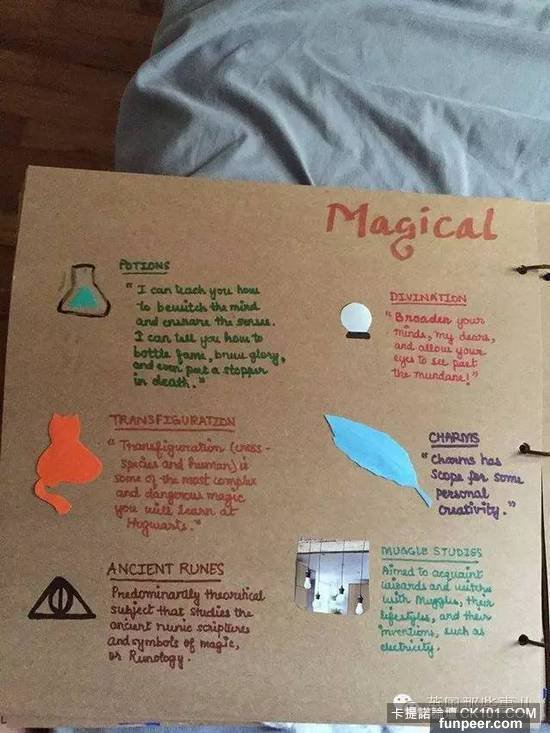 Magical
POTIONS
"I can teach you how
to bewitch the mind
and ensnare the senses.
I can tell you how to
bottle fame, brew glory,
and even put a stopper
in death."
DIVINATION
"Broaden your
minds, my dears,
and allow your
eyes to see past
the mundane!"
TRANSFIGURATION
"Transfiguration (cross-
species and human) is
some of the most complex
and dangerous magic
you will learn at
Hogwarts."
CHARMS
"Charms has
scope for some
personal
creativity."
ANCIENT RUNES
Predominantly theoretical
subject that studies the
ancient runic scriptures
and symbols of magic,
or Runology.
MUGGLE STUDIES
Aimed to acquaint
wizards and witches
with Muggles, their
lifestyles, and their
inventions, such as
electricity.
英国那些事儿
卡提諾論壇 CK101.COM
funpeer.com